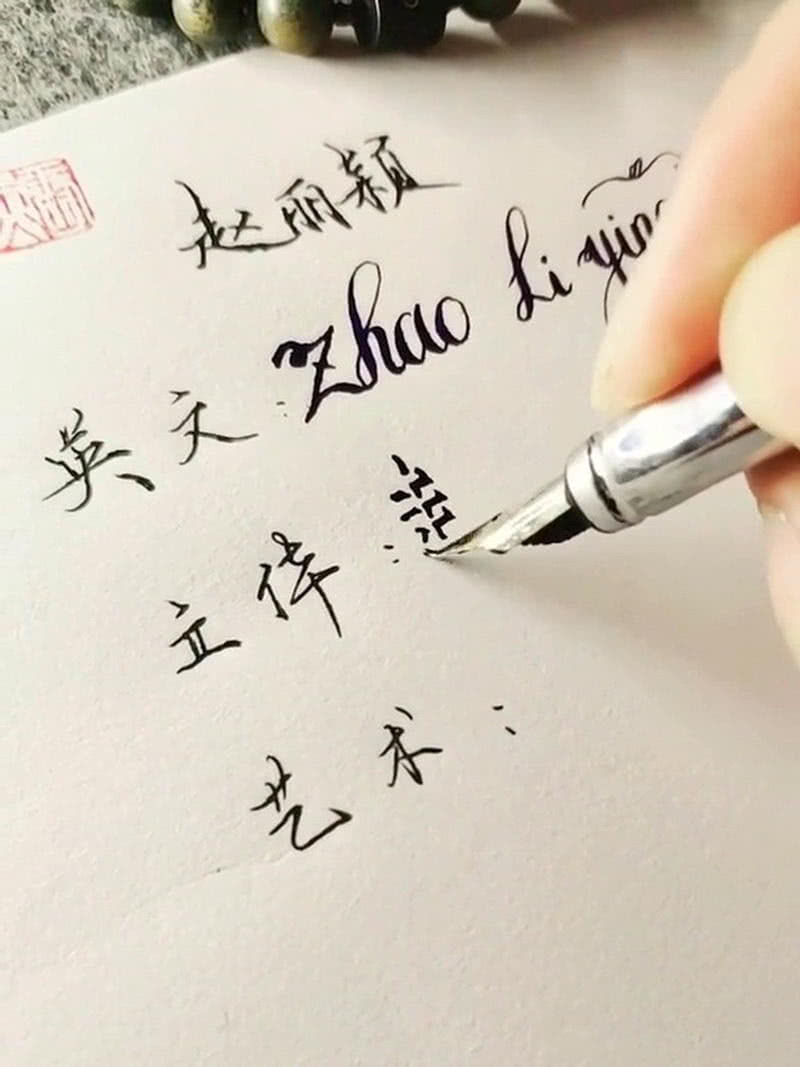 赵丽颖
英文:Zhao Li ying
立体:
艺术: